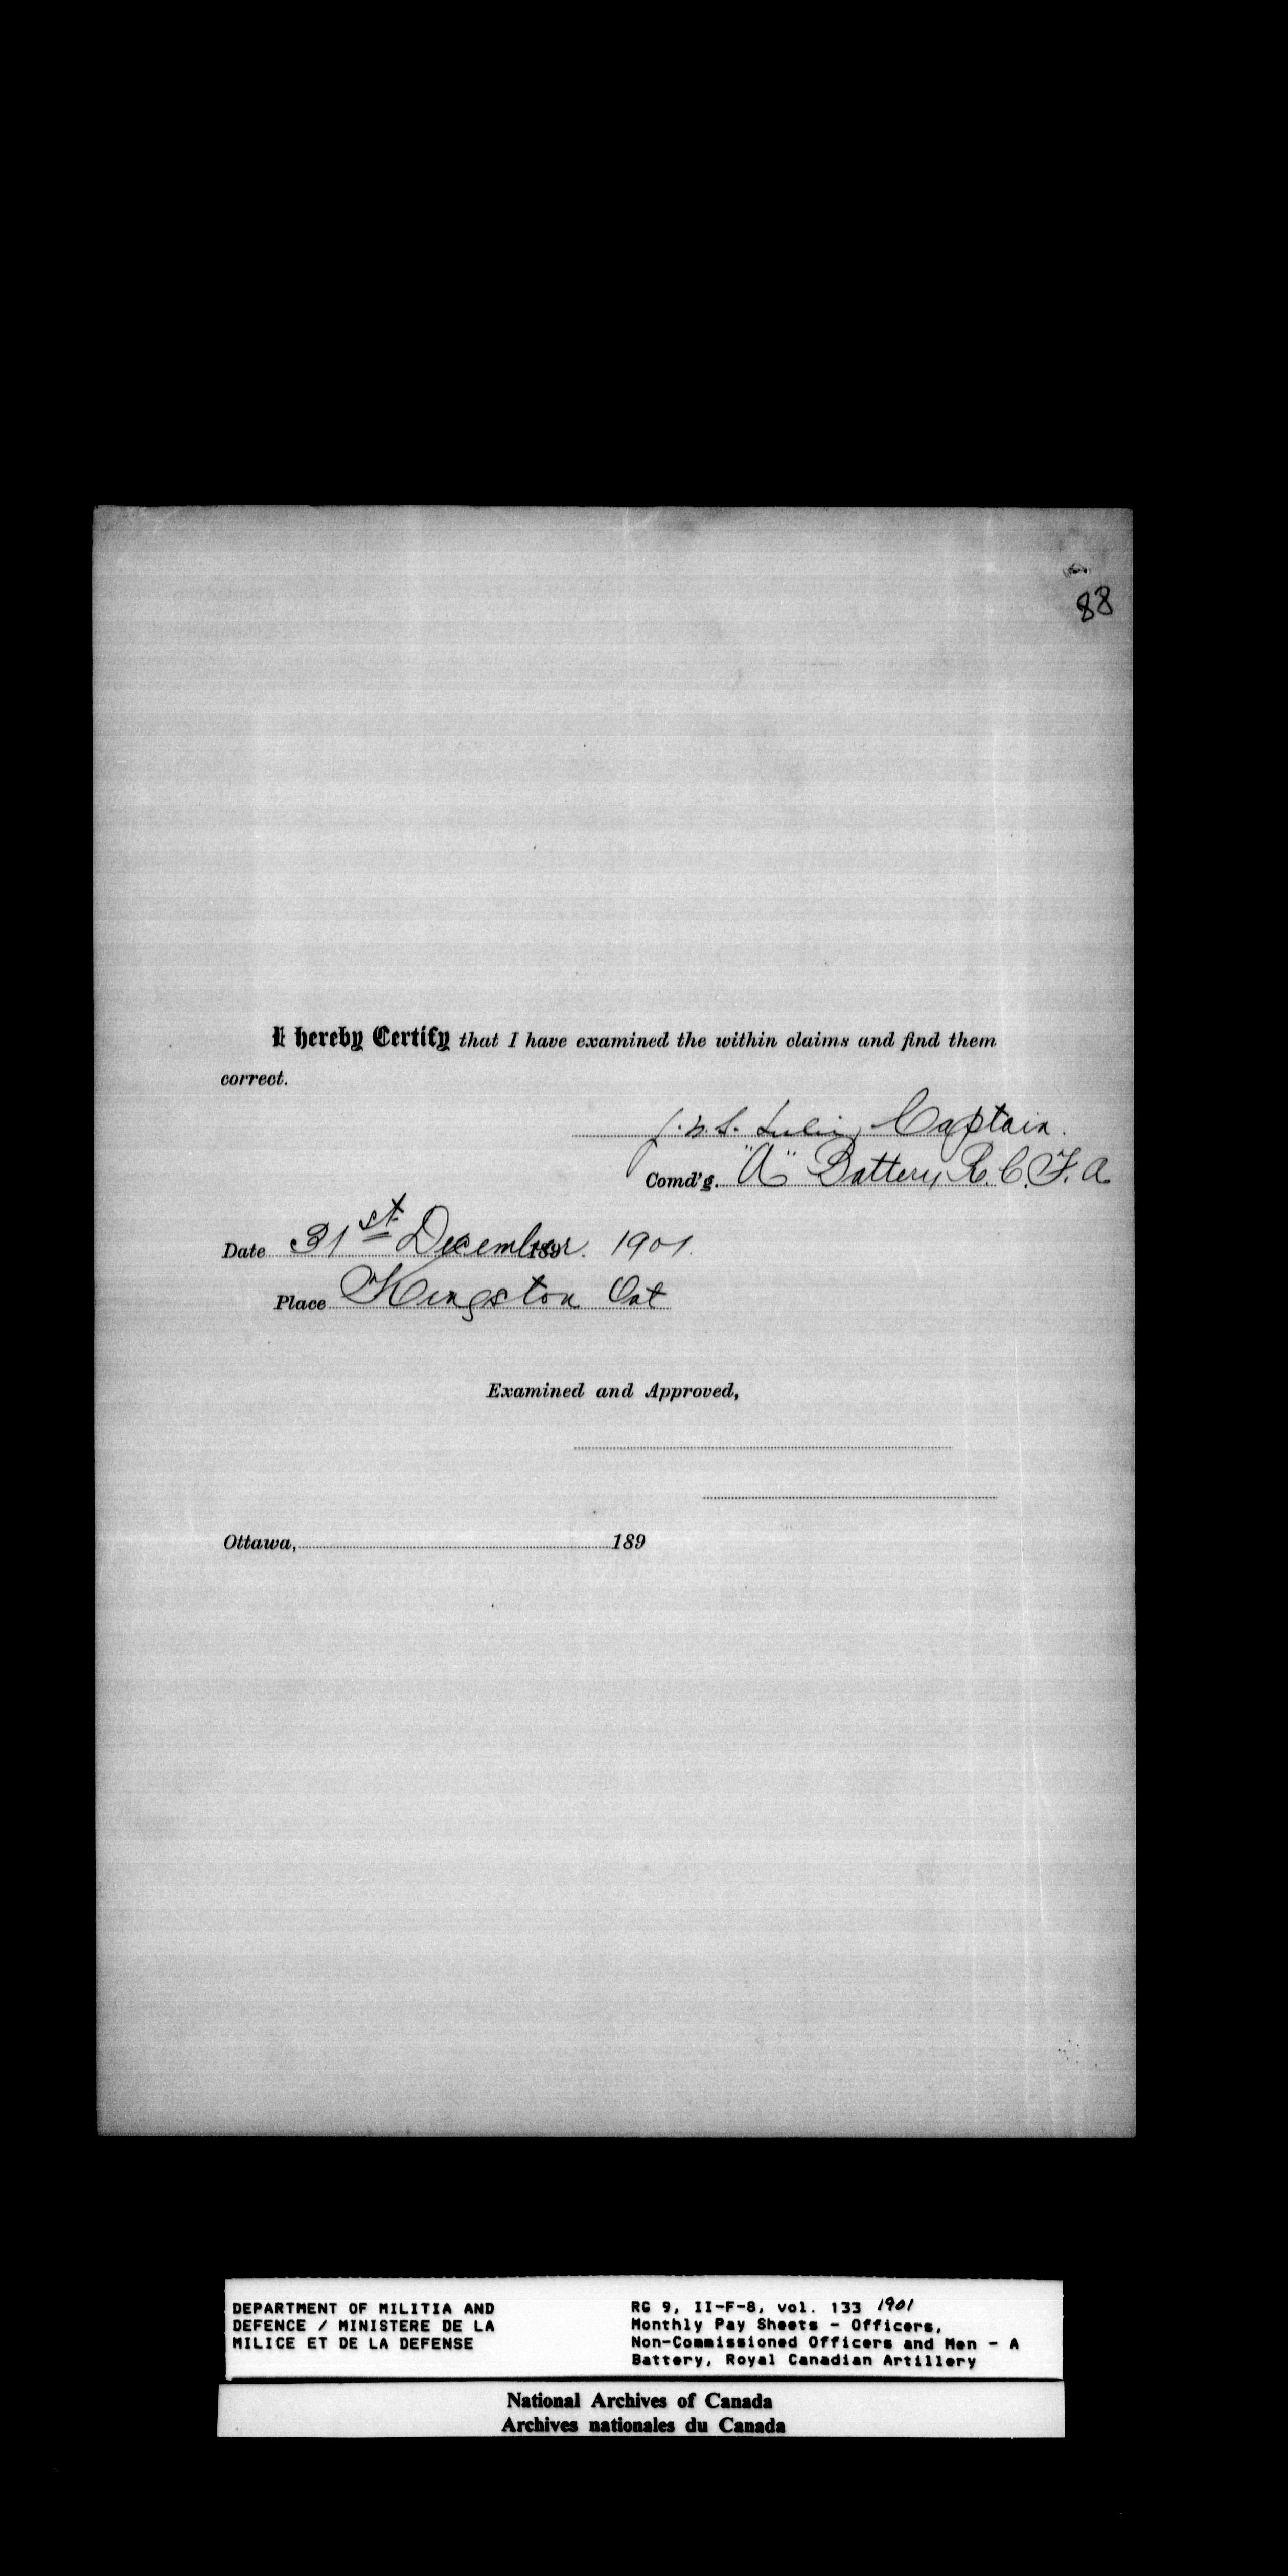 88
I hereby Certify that I have examined the within claims and find them
correct.
Captain.
Comd'g. "A" Battery R. C. F. A.
Date 31st December 189 . 1901.
Place Kingston Ont
Examined and Approved,
Ottawa, 189
DEPARTMENT OF MILITIA AND
DEFENCE / MINISTERE DE LA
MILICE ET DE LA DEFENSE
RG 9, II-F-8, vol. 133 1901
Monthly Pay Sheets - Officers,
Non-Commissioned Officers and Men - A
Battery, Royal Canadian Artillery
National Archives of Canada
Archives nationales du Canada